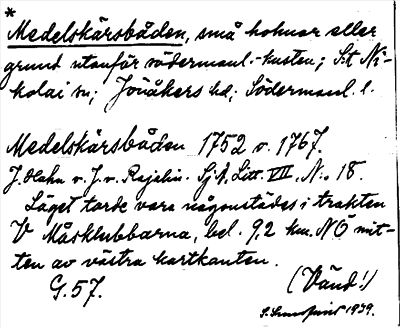 *
Medelskärsbåden, små holmar eller
grund utanför södermanl.-kusten; S:t Ni-
kolai sn; Jönåkers hd; Södermanl. l.
Medelskärsbåden 1752 o. 1767.
J. Hahn o. J. v. Rajalin. Sj. A. Litt. VII, No 18.
Läget torde vara någonstädes i trakten
V Måsklubbarna, bel. 9,2 km. NÖ mit-
ten av västra kartkanten.
G. 57. (Vänd!)
1939.